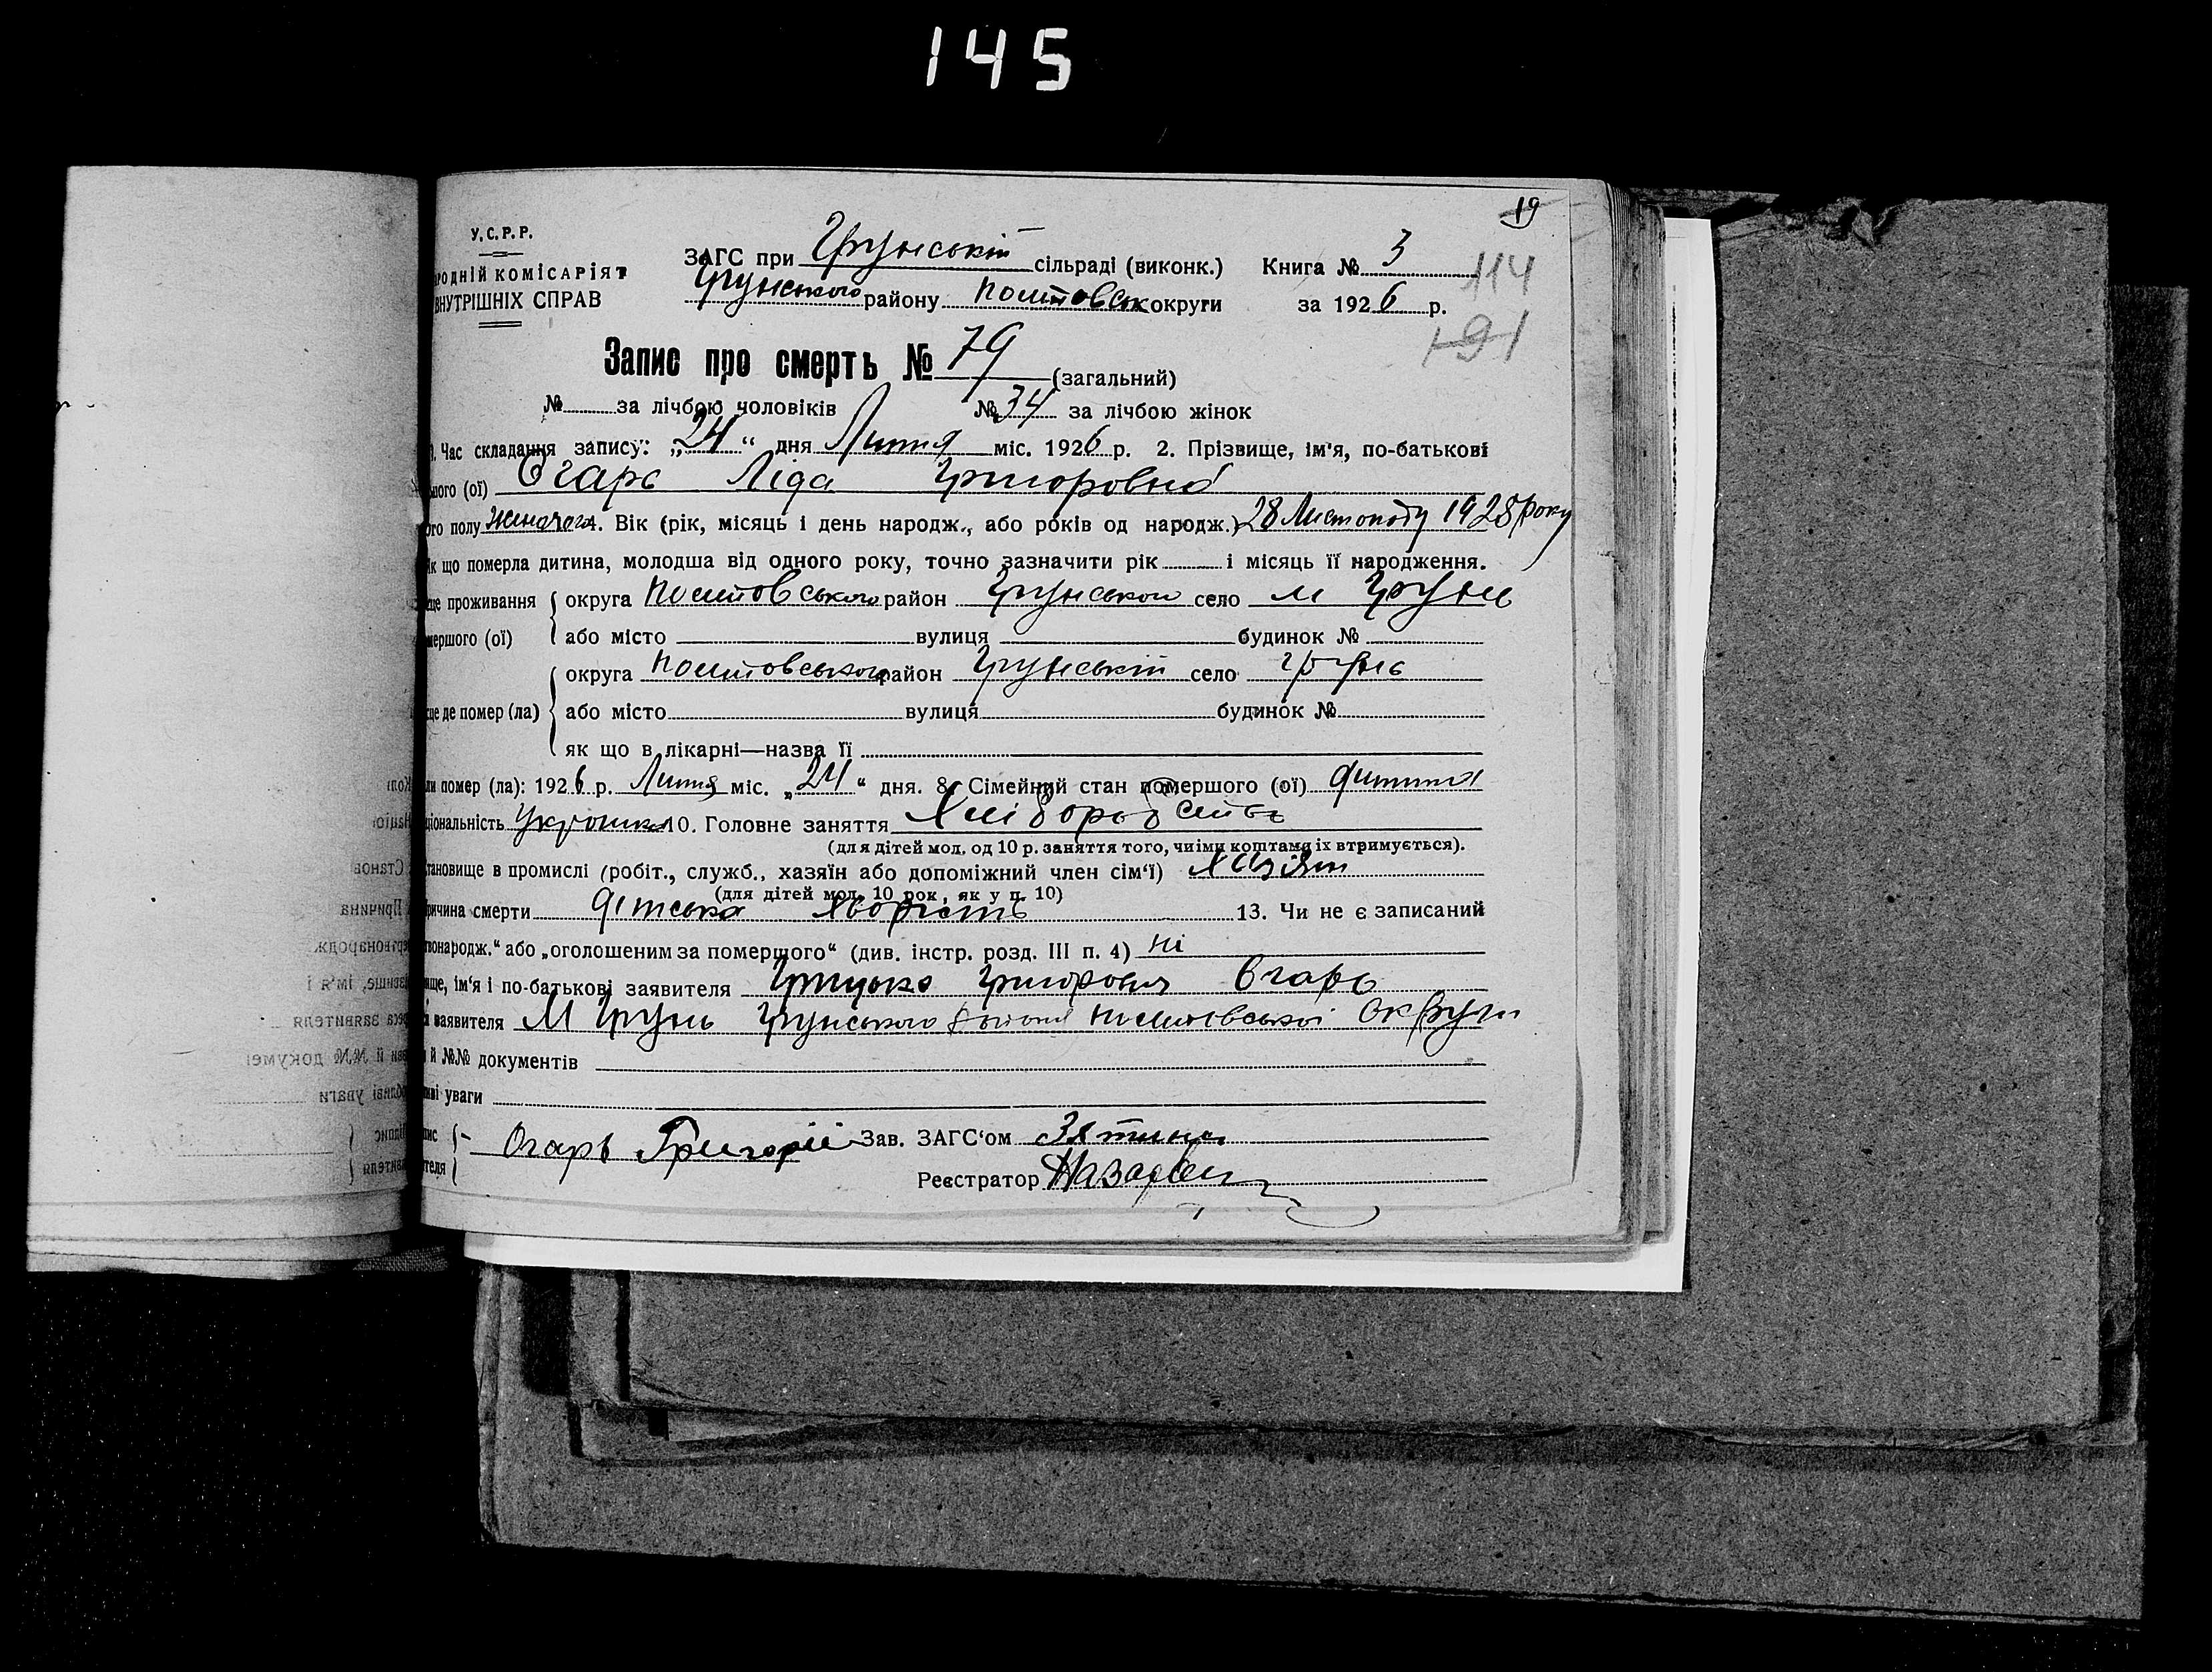 145
19
У.С.Р.Р.
ЗАГС при Грунській сільраді (виконк.) Книга № 3
РОДНІЙ КОМІСАРІЯТ
114
ВНУТРІШНІХ СПРАВ
Грунського району округи за 1926 р.
191
Запис про смерть № 79 (загальний)
№ за лічбою чоловіків № 34 за лічбою жінок
Час складання запису: „24“ дня Липня міс. 1926 р. 2. Прізвище, ім'я, по-батькові
ного (ої) Огарь Ліда Григоровна
ого полу 4. Вік (рік, місяць і день народж., або років од народж.) 28 Листопаду 1928 року
к що померла дитина, молодша від одного року, точно зазначити рік і місяць її народження.
це проживання округа район село м Грунь
мершого (ої) або місто вулиця будинок №
округа район Грунській село Грунь
це де помер (ла) або місто вулиця будинок №
як що в лікарні—назва її
ли помер (ла): 1926 р. Липня міс. „24“ дня. 8. Сімейний стан помершого (ої) дитина
ціональність 10. Головне заняття Хліборобство
(для дітей мол. од 10 р. заняття того, чиїми коштами їх втримується).
тановище в промислі (робіт., служб., хазяїн або допоміжний член сім'ї) хазяїн
(для дітей мол. 10 рок, як у п. 10)
ричина смерти дітська хворість 13. Чи не є записаний
вонародж.“ або „оголошеним за помершого“ (див. інстр. розд. III п. 4) ні
ище, ім'я і по-батькові заявителя Грицько Григорович Огарь
заявителя М Грунь Грунського округи
й №№ документів
иві уваги
пис Огарь Григорій Зав. ЗАГС'ом
теля Реєстратор